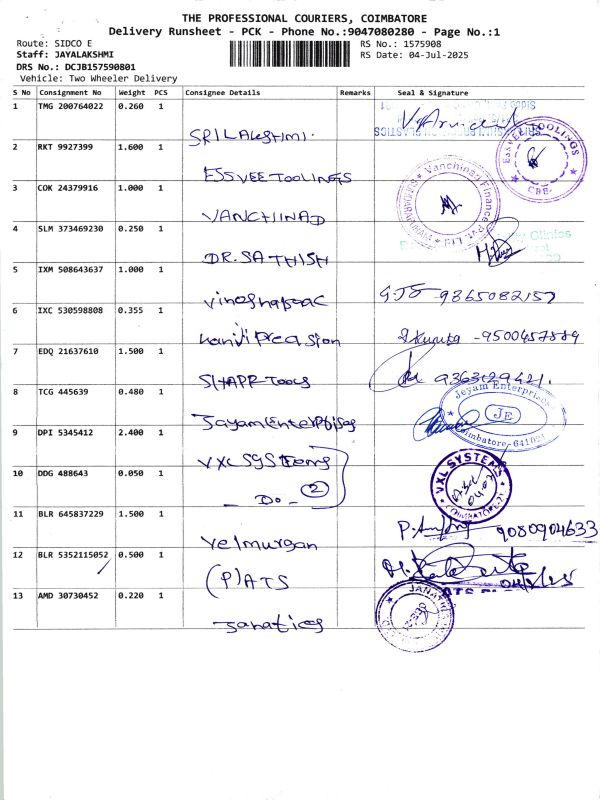 THE PROFESSIONAL COURIERS, COIMBATORE
Delivery Runsheet - PCK - Phone No.:9047080280 - Page No.:1
Route: SIDCO E
RS No.: 1575908
Staff: JAYALAKSHMI
RS Date: 04-Jul-2025
DRS No.: DCJB157590801
Vehicle: Two Wheeler Delivery
S No Consignment No Weight PCS Consignee Details Remarks Seal & Signature
1 TMG 200764022 0.260 1 SRI LAKSHMI.
2 RKT 9927399 1.600 1 ESSVEE TOOLINGS
ESSVEE TOOLINGS
CBE
3 COK 24379916 1.000 1 VANCHINAD
Vanchinad Finance Pvt. Ltd
4 SLM 373469230 0.250 1 DR. SATHISH
Clinics
5 IXM 508643637 1.000 1 9865082157
6 IXC 530598808 0.355 1 - 9500457889
7 EDQ 21637610 1.500 1 SHAPR TOOLS 9363129421.
8 TCG 445639 0.480 1 Jayam Enterprises
Jayam Enterprises
JE
Coimbatore-641021
9 DPI 5345412 2.400 1 VXL Systems
10 DDG 488643 0.050 1 - Do - 2
VXL SYSTEMS
COIMBATORE
11 BLR 645837229 1.500 1 Velmurgan 9080904633
12 BLR 5352115052 0.500 1 (P) ATS
13 AMD 30730452 0.220 1 Janatics